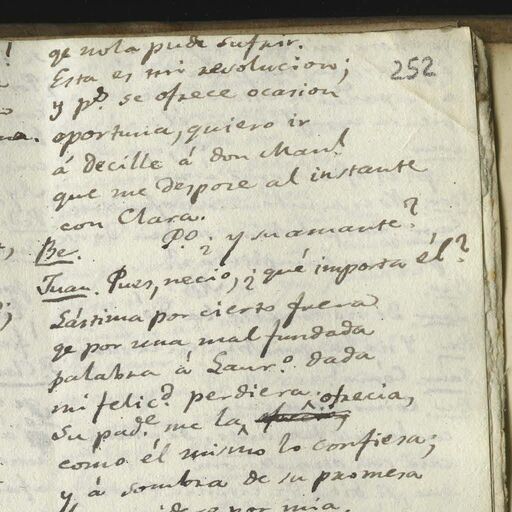 qe no la pude sufrir.
252
Esta es mi resolucion;
y ps. se ofrece ocasion
oportuna, quiero ir
á decille á don Manl.
que me despose al instante
con Clara.
Be. Po. ¿ y su amante?
Juan. Pues, necio, ¿ qué importa él?
Lástima por cierto fuera
qe por una mal fundada
palabra á Laur.o dada
mi felicd. perdiera.
Su pade. me la ofrecia,
como él mismo lo confiesa;
y á sombra de su promesa
por mia.